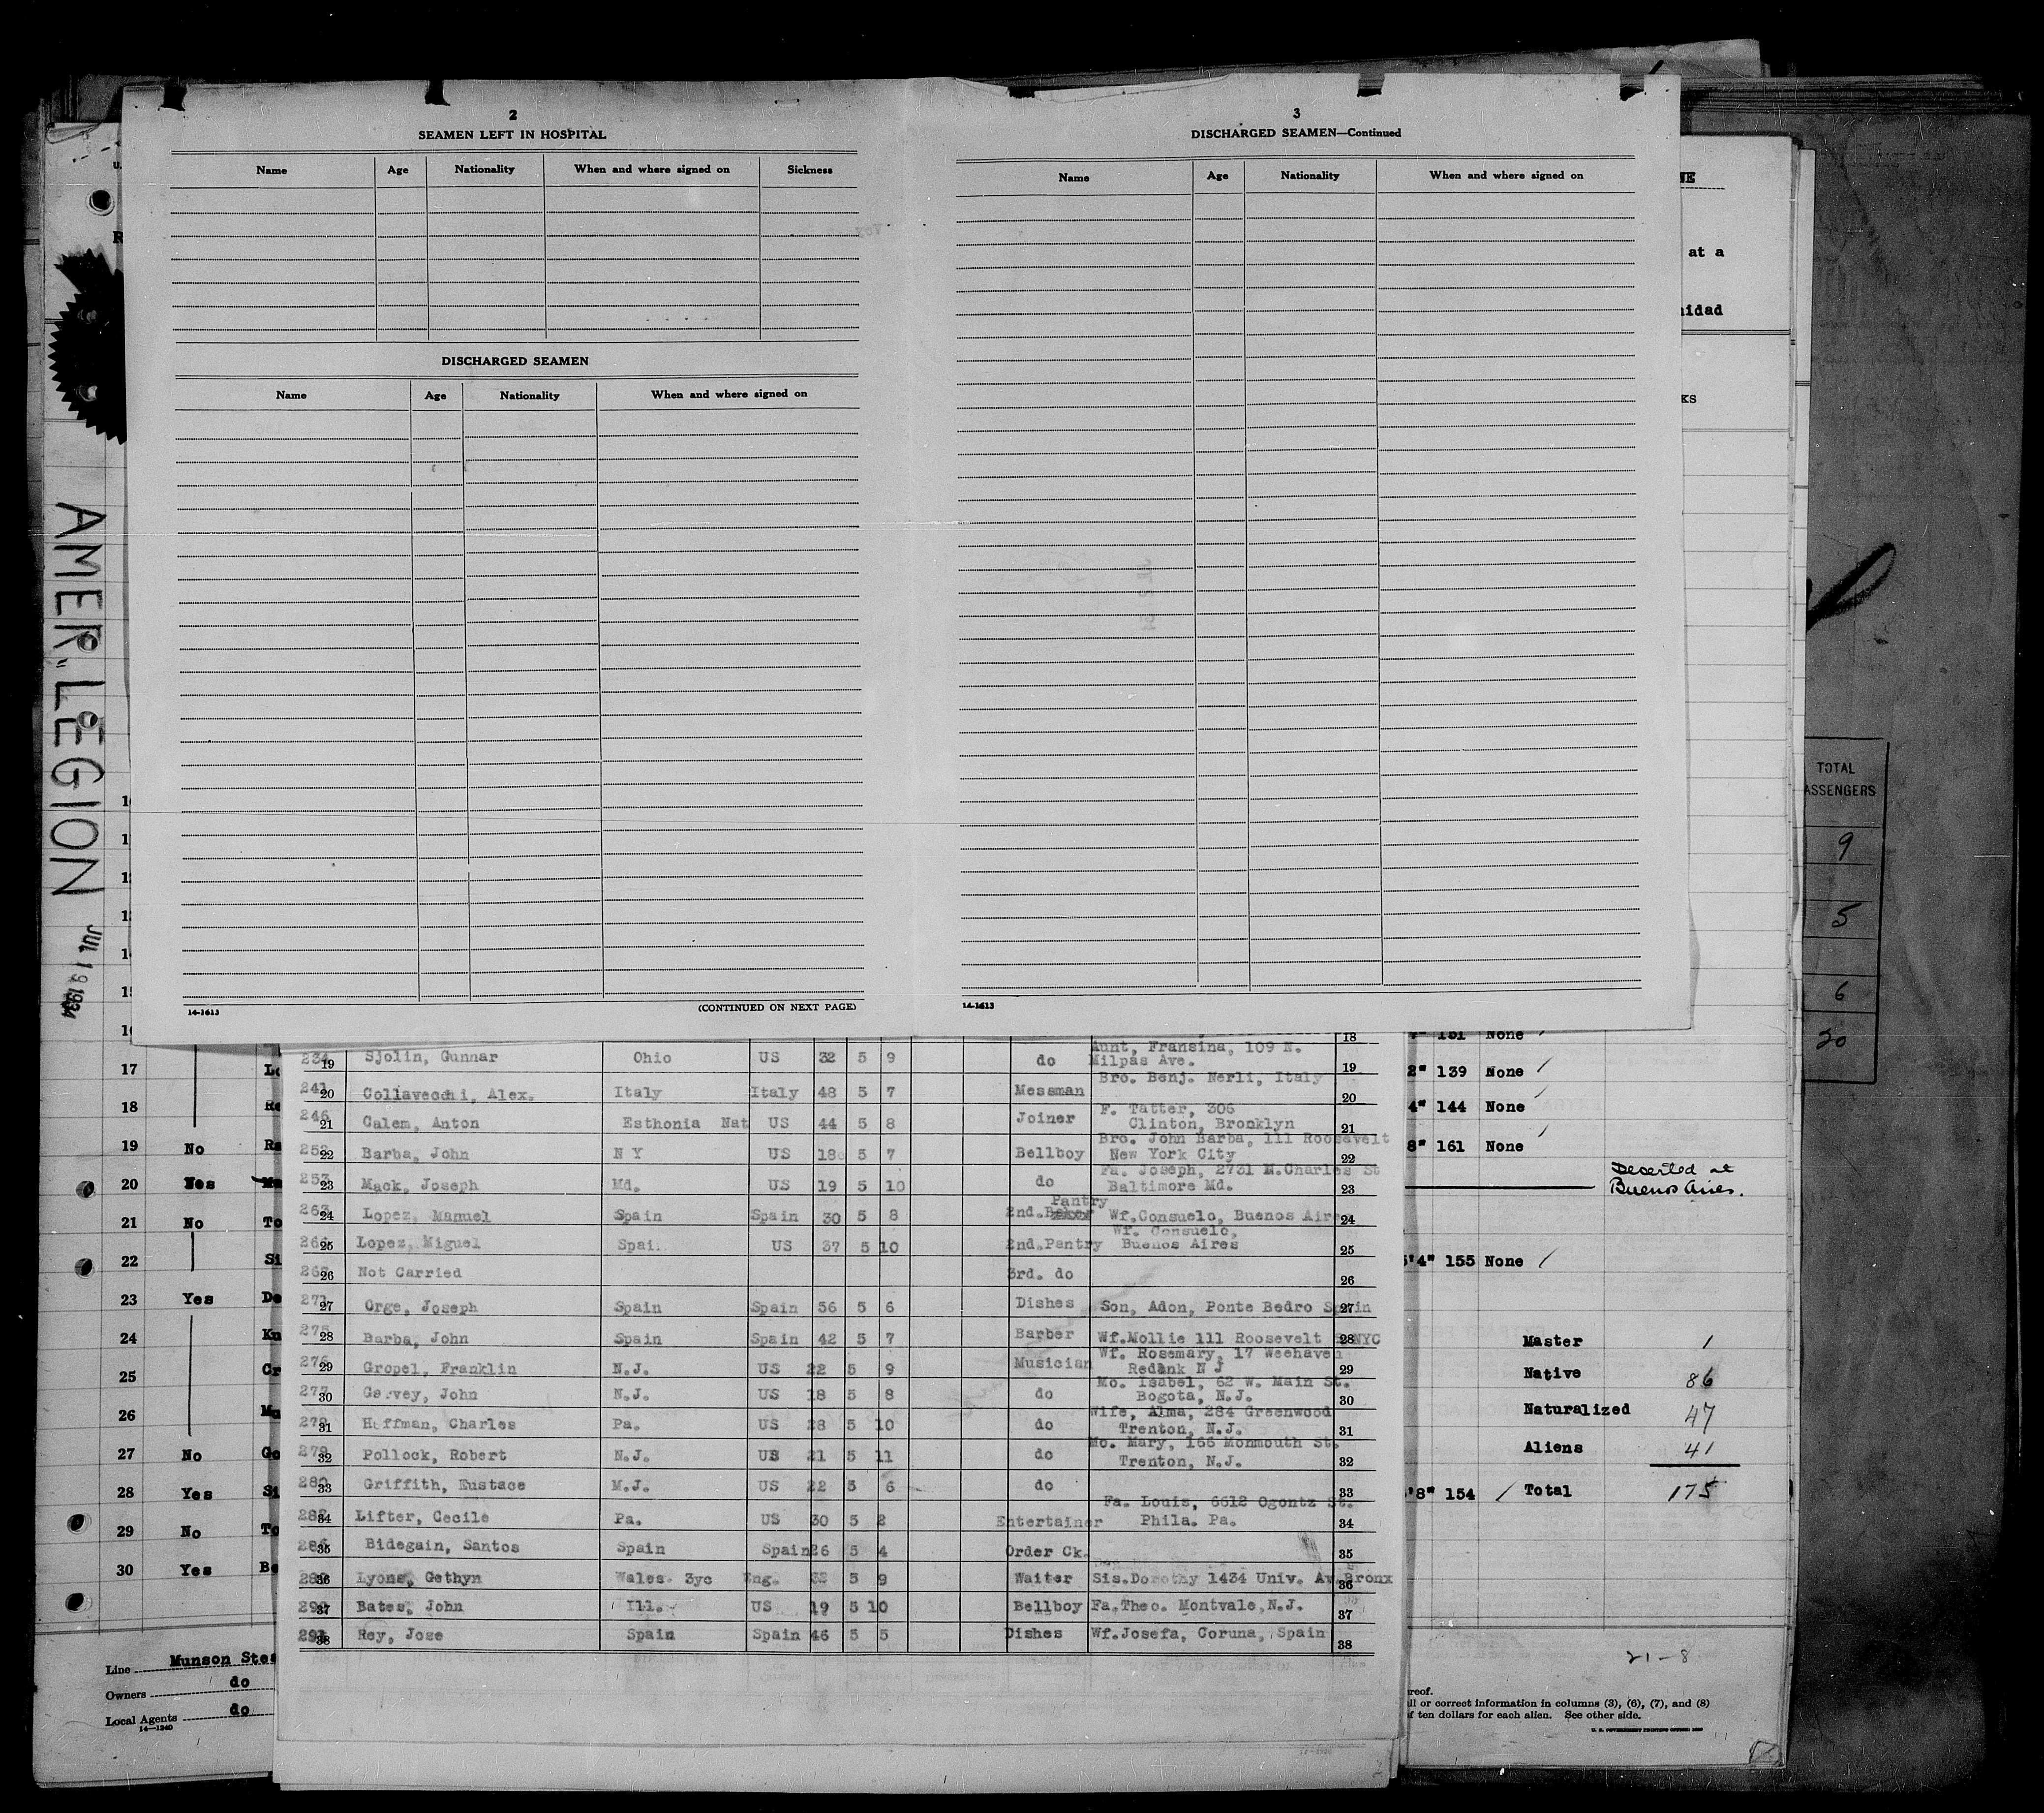 2
SEAMEN LEFT IN HOSPITAL
Name Age Nationality When and where signed on Sickness
DISCHARGED SEAMEN
Name Age Nationality When and where signed on
14-1613 (CONTINUED ON NEXT PAGE)
3
DISCHARGED SEAMEN—Continued
Name Age Nationality When and where signed on
14-1613
AMER. LEGION
JUL 19 1934
at a
TOTAL
9
5
6
20
18
Aunt, Fransina, 109 N.
234 19 Sjolin, Gunnar Ohio US 32 5 9 do Milpas Ave. 19
Bro. Benj. Nerli, Italy
241 20 Coliavecchi, Alex. Italy Italy 48 5 7 Messman 20
F. Tatter, 306
246 21 Calem, Anton Esthonia Nat US 44 5 8 Joiner Clinton, Brooklyn 21
Bro. John Barba, 111 Roosevelt
252 22 Barba, John N Y US 18 5 7 Bellboy New York City 22
Fa. Joseph, 2731 M.Charles St
253 23 Mack, Joseph Md. US 19 5 10 do Baltimore Md. 23
Pantry
263 24 Lopez, Manuel Spain Spain 30 5 8 2nd. Wf.Consuelo, Buenos Aires 24
Wf. Consuelo,
25 Lopez, Miguel Spai. US 37 5 10 2nd.Pantry Buenos Aires 25
26 Not Carried 3rd. do 26
271 27 Orge, Joseph Spain Spain 56 5 6 Dishes Son, Adon, Ponte Bedro Spain 27
275 28 Barba, John Spain Spain 42 5 7 Barber Wf.Mollie 111 Roosevelt S NYC 28
Wf. Rosemary, 17 Weehaven
276 29 Gropel, Franklin N.J. US 22 5 9 Musician Redbank N J 29
Mo. Isabel, 62 W. Main St.
277 30 Garvey, John N.J. US 18 5 8 do Bogota, N.J. 30
Wife, Alma, 284 Greenwood
278 31 Hoffman, Charles Pa. US 28 5 10 do Trenton, N.J. 31
Mo. Mary, 166 Monmouth St.
279 32 Pollock, Robert N.J. US 21 5 11 do Trenton, N.J. 32
280 33 Griffith, Eustace M.J. US 22 5 6 do 33
Fa. Louis, 6612 Ogontz St.
34 Lifter, Cecile Pa. US 30 5 2 Entertainer Phila. Pa. 34
35 Bidegain, Santos Spain Spain 26 5 4 Order Ck. 35
36 Lyons, Gethyn Wales. 3yc Eng. 5 9 Waiter Sis.Dorothy 1434 Univ. Av.Bronx 36
37 Bates, John Ill. US 19 5 10 Bellboy Fa.Theo. Montvale,N.J. 37
38 Rey, Jose Spain Spain 46 5 5 Dishes Wf.Josefa, Coruna, Spain 38
17
18
19 No
20 Yes
21 No
22
23 Yes
24
25
26
27 No
28 Yes
29 No
30 Yes
Line Munson
Owners do
Local Agents do
14—1240
151 None
139 None
144 None
161 None
Deserted at
Buenos Aires.
155 None
Master 1
Native 86
Naturalized 47
Aliens 41
154 Total 175
21-8
or correct information in columns (3), (6), (7), and (8)
of ten dollars for each alien. See other side.
U. S. GOVERNMENT PRINTING OFFICE